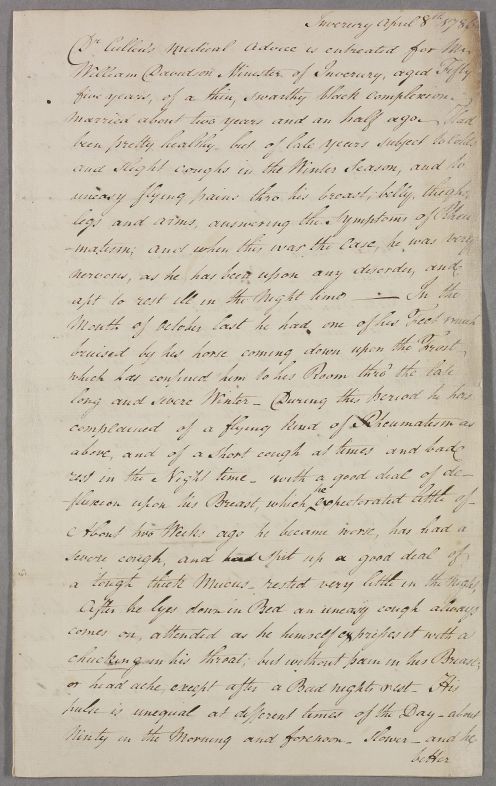 Inverury April 8th 1786
Dr Cullen's Medical Advice is entreated for Mr
William Davidson Minister of Inverury, aged Fifty
five years, of a thin, swarthy black complexion.
Married about two years and an half ago. Had
been pretty healthy, but of late years subject to Colds
and slight coughs in the Winter Season, and to
uneasy flying pains thro his breast, belly, thighs,
legs and arms, answering the Symptoms of Rheu
-matism; and when this was the Case, he was very
nervous, as he has been upon any disorder, and
apt to rest ill in the Night time — In the
Month of October last he had one of his Feet much
bruised by his horse coming down upon the Frost
which has confined him to his Room thro' the late
long and severe Winter - During this period he has
complained of a flying kind of Rheumatism as
above, and of a short cough at times and bad
rest in the Night time - with a good deal of de-
fluxion upon his Breast, which he expectorated little of -
About two Weeks ago he became worse, has had a
severe cough, and had spit up a good deal of
a tough thick Mucus - rested very little in the Night,
After he lyes down in Bed an uneasy cough always
comes on, attended as he himself expresses it with a
chucking in his throat; but without pain in his Breast,
or head ache, except after a Bad nights rest - His
pulse is unequal at different times of the Day - about
Ninty in the Morning and forenoon - slower - and he
better